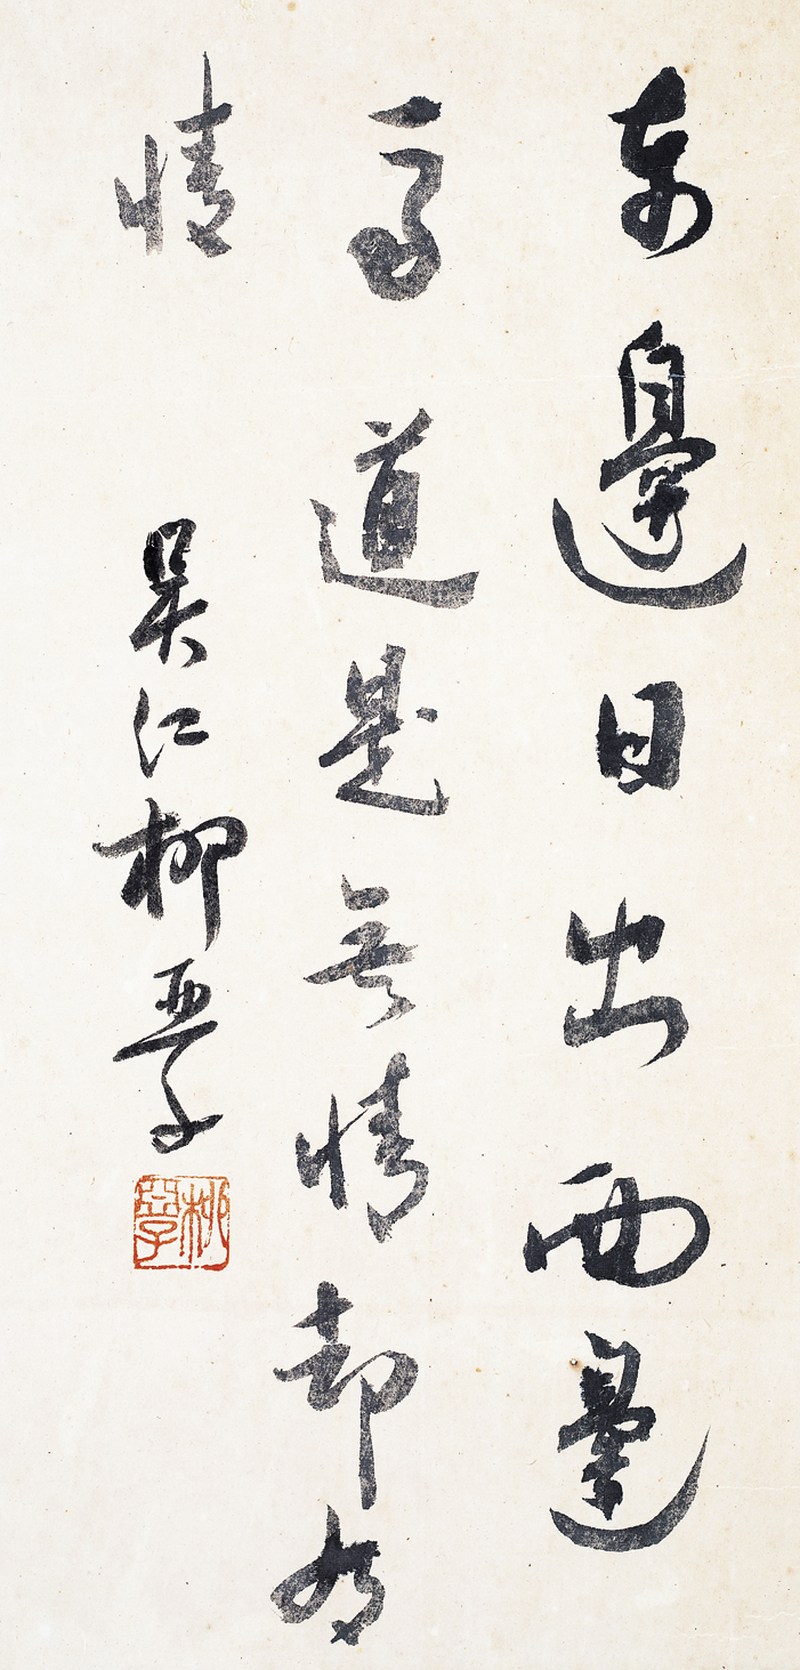 東邊日出西邊
雨道是無情却有
情
吳江柳亞子
柳亞子